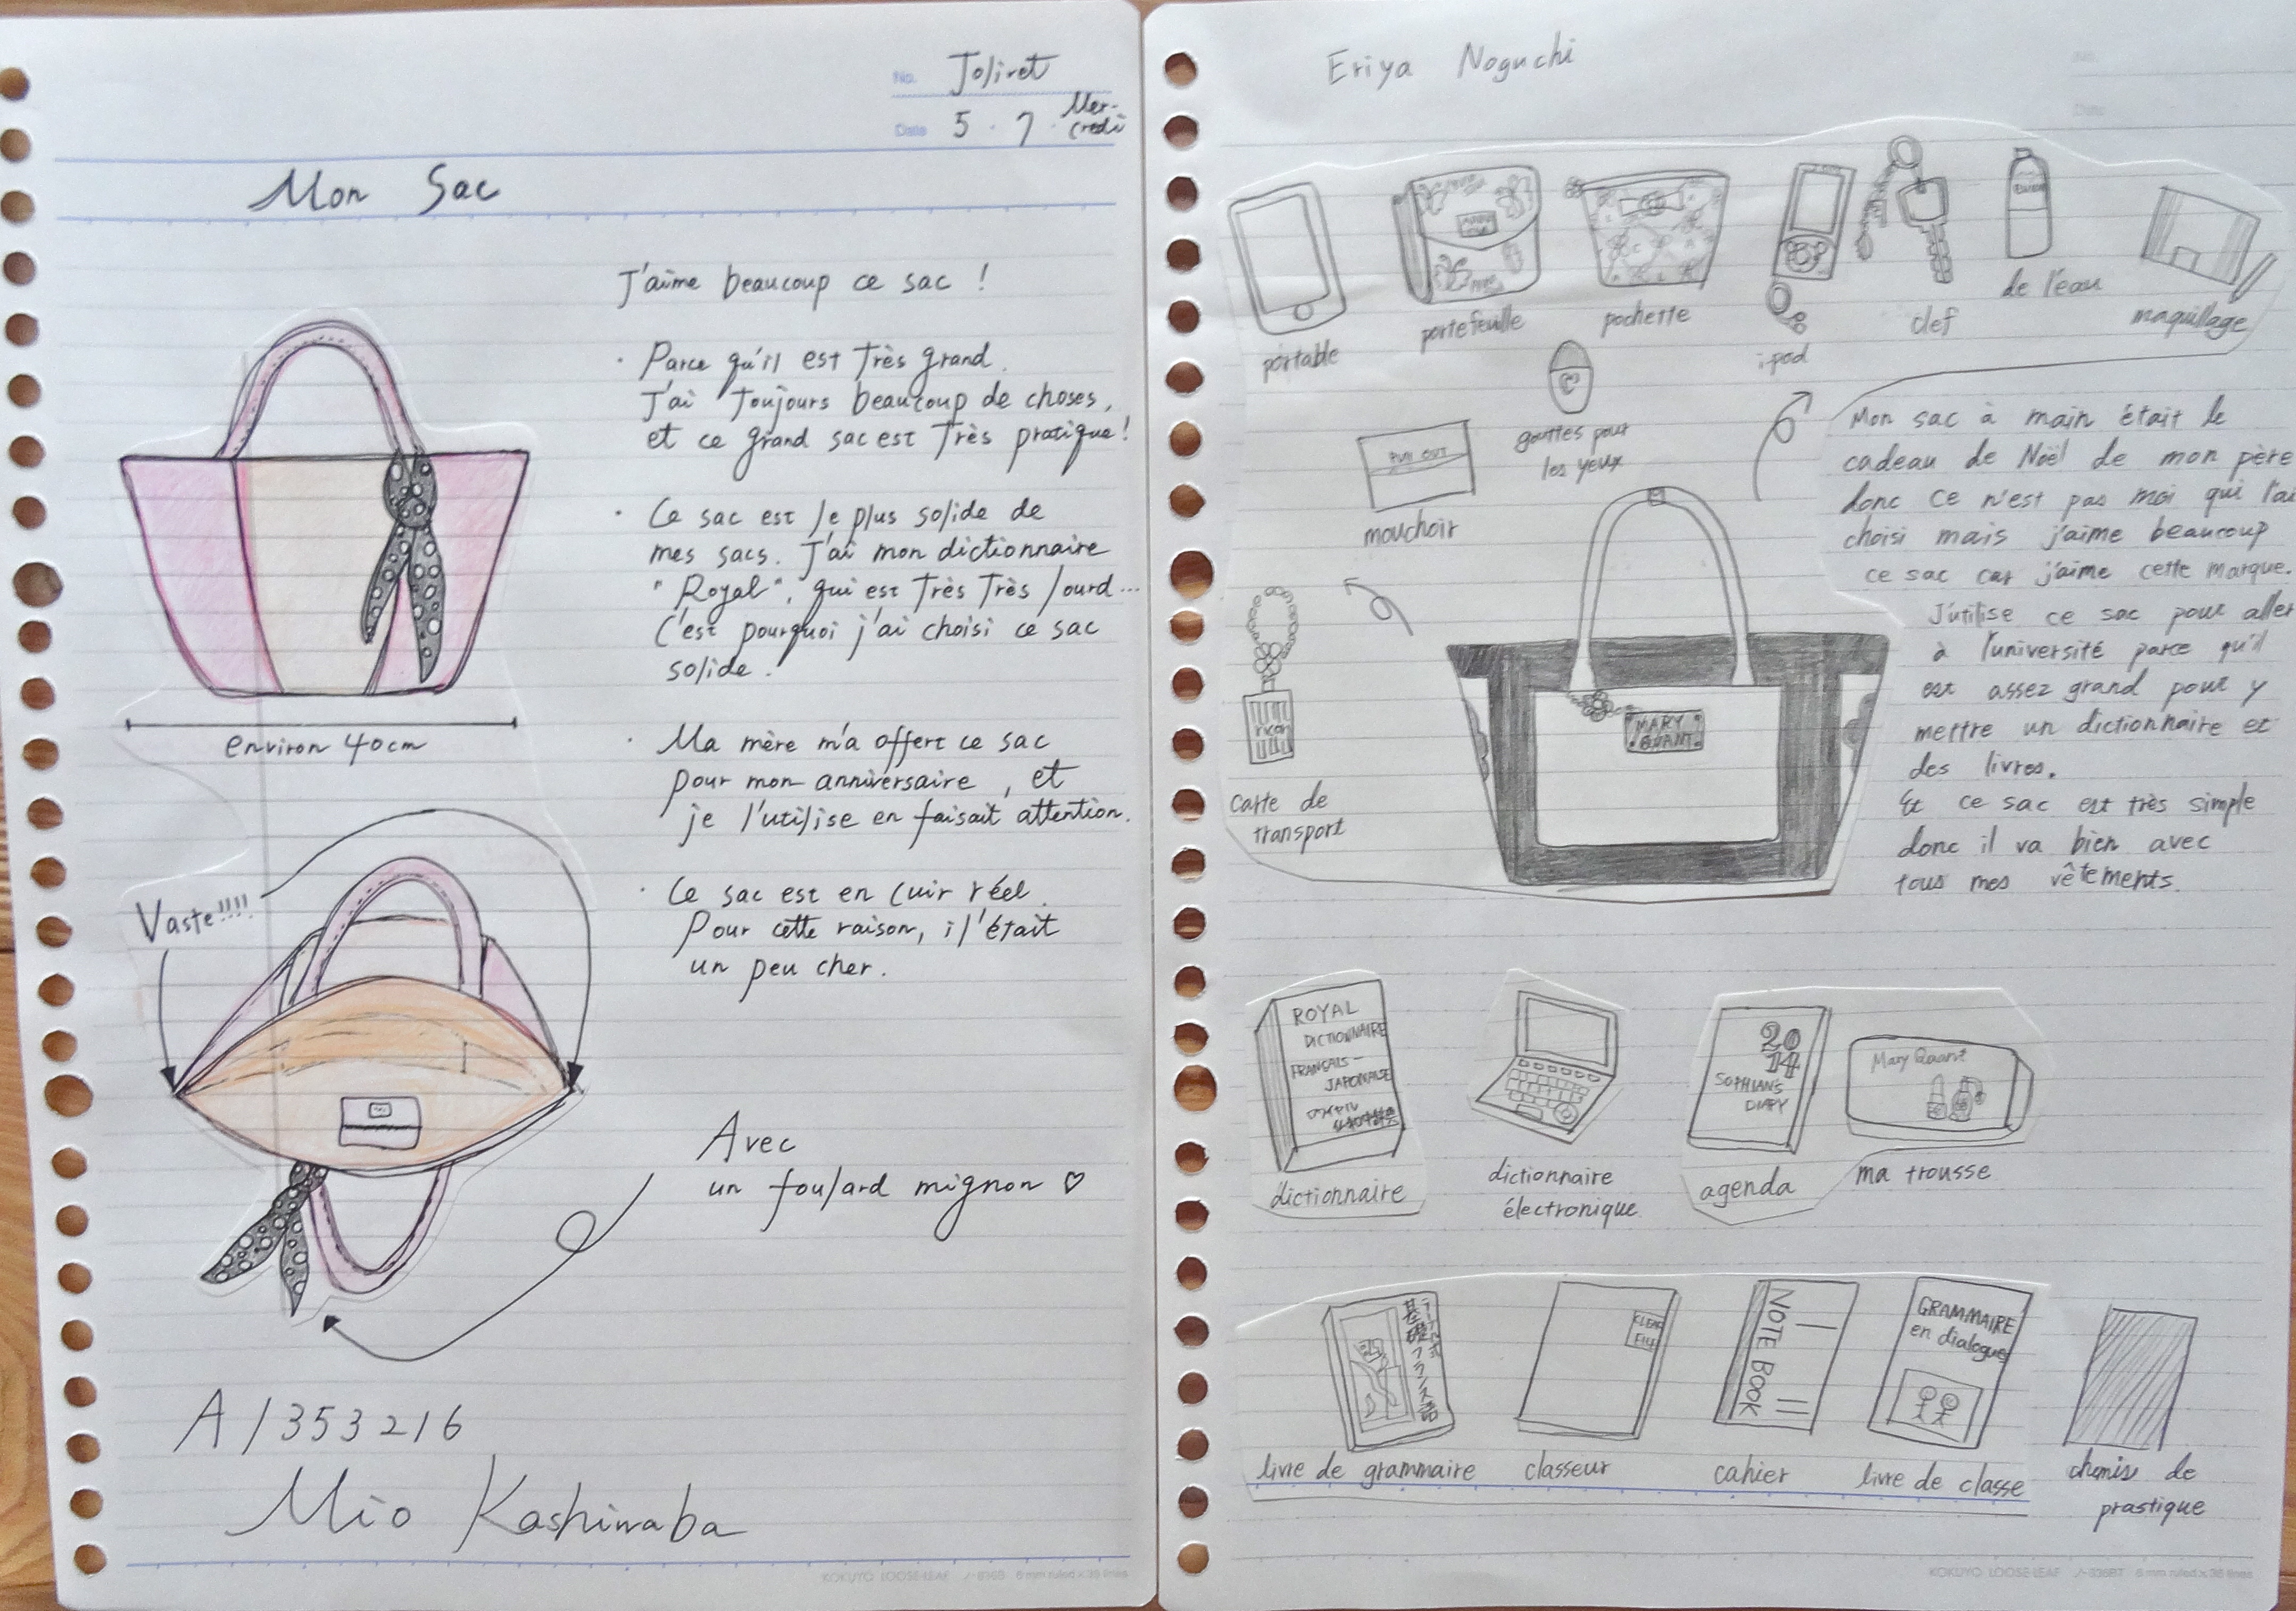 No. Joliret
Date 5 . 7 . Mer-
credi
Mon Sac
J'aime beaucoup ce sac !
· Parce qu'il est très grand.
J'ai toujours beaucoup de choses,
et ce grand sac est très pratique !
· Ce sac est le plus solide de
mes sacs. J'ai mon dictionnaire
"Royal", qui est très très lourd...
C'est pourquoi j'ai choisi ce sac
solide.
environ 40cm
· Ma mère m'a offert ce sac
pour mon anniversaire, et
je l'utilise en faisait attention.
Vaste!!!!
· Ce sac est en cuir réel.
Pour cette raison, il'était
un peu cher.
Avec
un foulard mignon ♡
A1353216
Mio Kashiwaba
KOKUYO LOOSE-LEAF ノ-836B 6 mm ruled x 36 lines
Eriya Noguchi
No.
Date
portable
portefeuille
pochette
i-pod
clef
de l'eau
maquillage
PULL OUT
mouchoir
gouttes pour
les yeux
Mon sac à main était le
cadeau de Noël de mon père
donc ce n'est pas moi qui l'ai
choisi mais j'aime beaucoup
ce sac car j'aime cette marque.
J'utilise ce sac pour aller
à l'université parce qu'il
est assez grand pour y
mettre un dictionnaire et
des livres.
Et ce sac est très simple
donc il va bien avec
tous mes vêtements.
MARY
QUANT
carte de
transport
ROYAL
DICTIONNAIRE
FRANÇAIS-
JAPONAISE
dictionnaire
dictionnaire
électronique
20
14
SOPHIAN'S
DIARY
agenda
Mary Quant
ma trousse
基礎フランス語
livre de grammaire
CLEAR
FILE
classeur
NOTE BOOK
cahier
GRAMMAIRE
en dialogues
livre de classe
chemis de
prastique
KOKUYO LOOSE-LEAF ノ-836BT 6 mm ruled x 36 lines